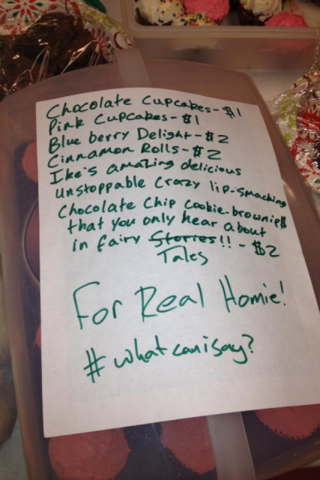 Chocolate Cupcakes-$1
Pink Cupcakes-$1
Blue berry Delight-$2
Cinnamon Rolls-$2
Ike's amazing delicious
unstoppable crazy lip-smacking
Chocolate Chip cookie-brownies
that you only hear about
in fairy Stories!! - $2
Tales
For Real Homie!
#whatcanisay?